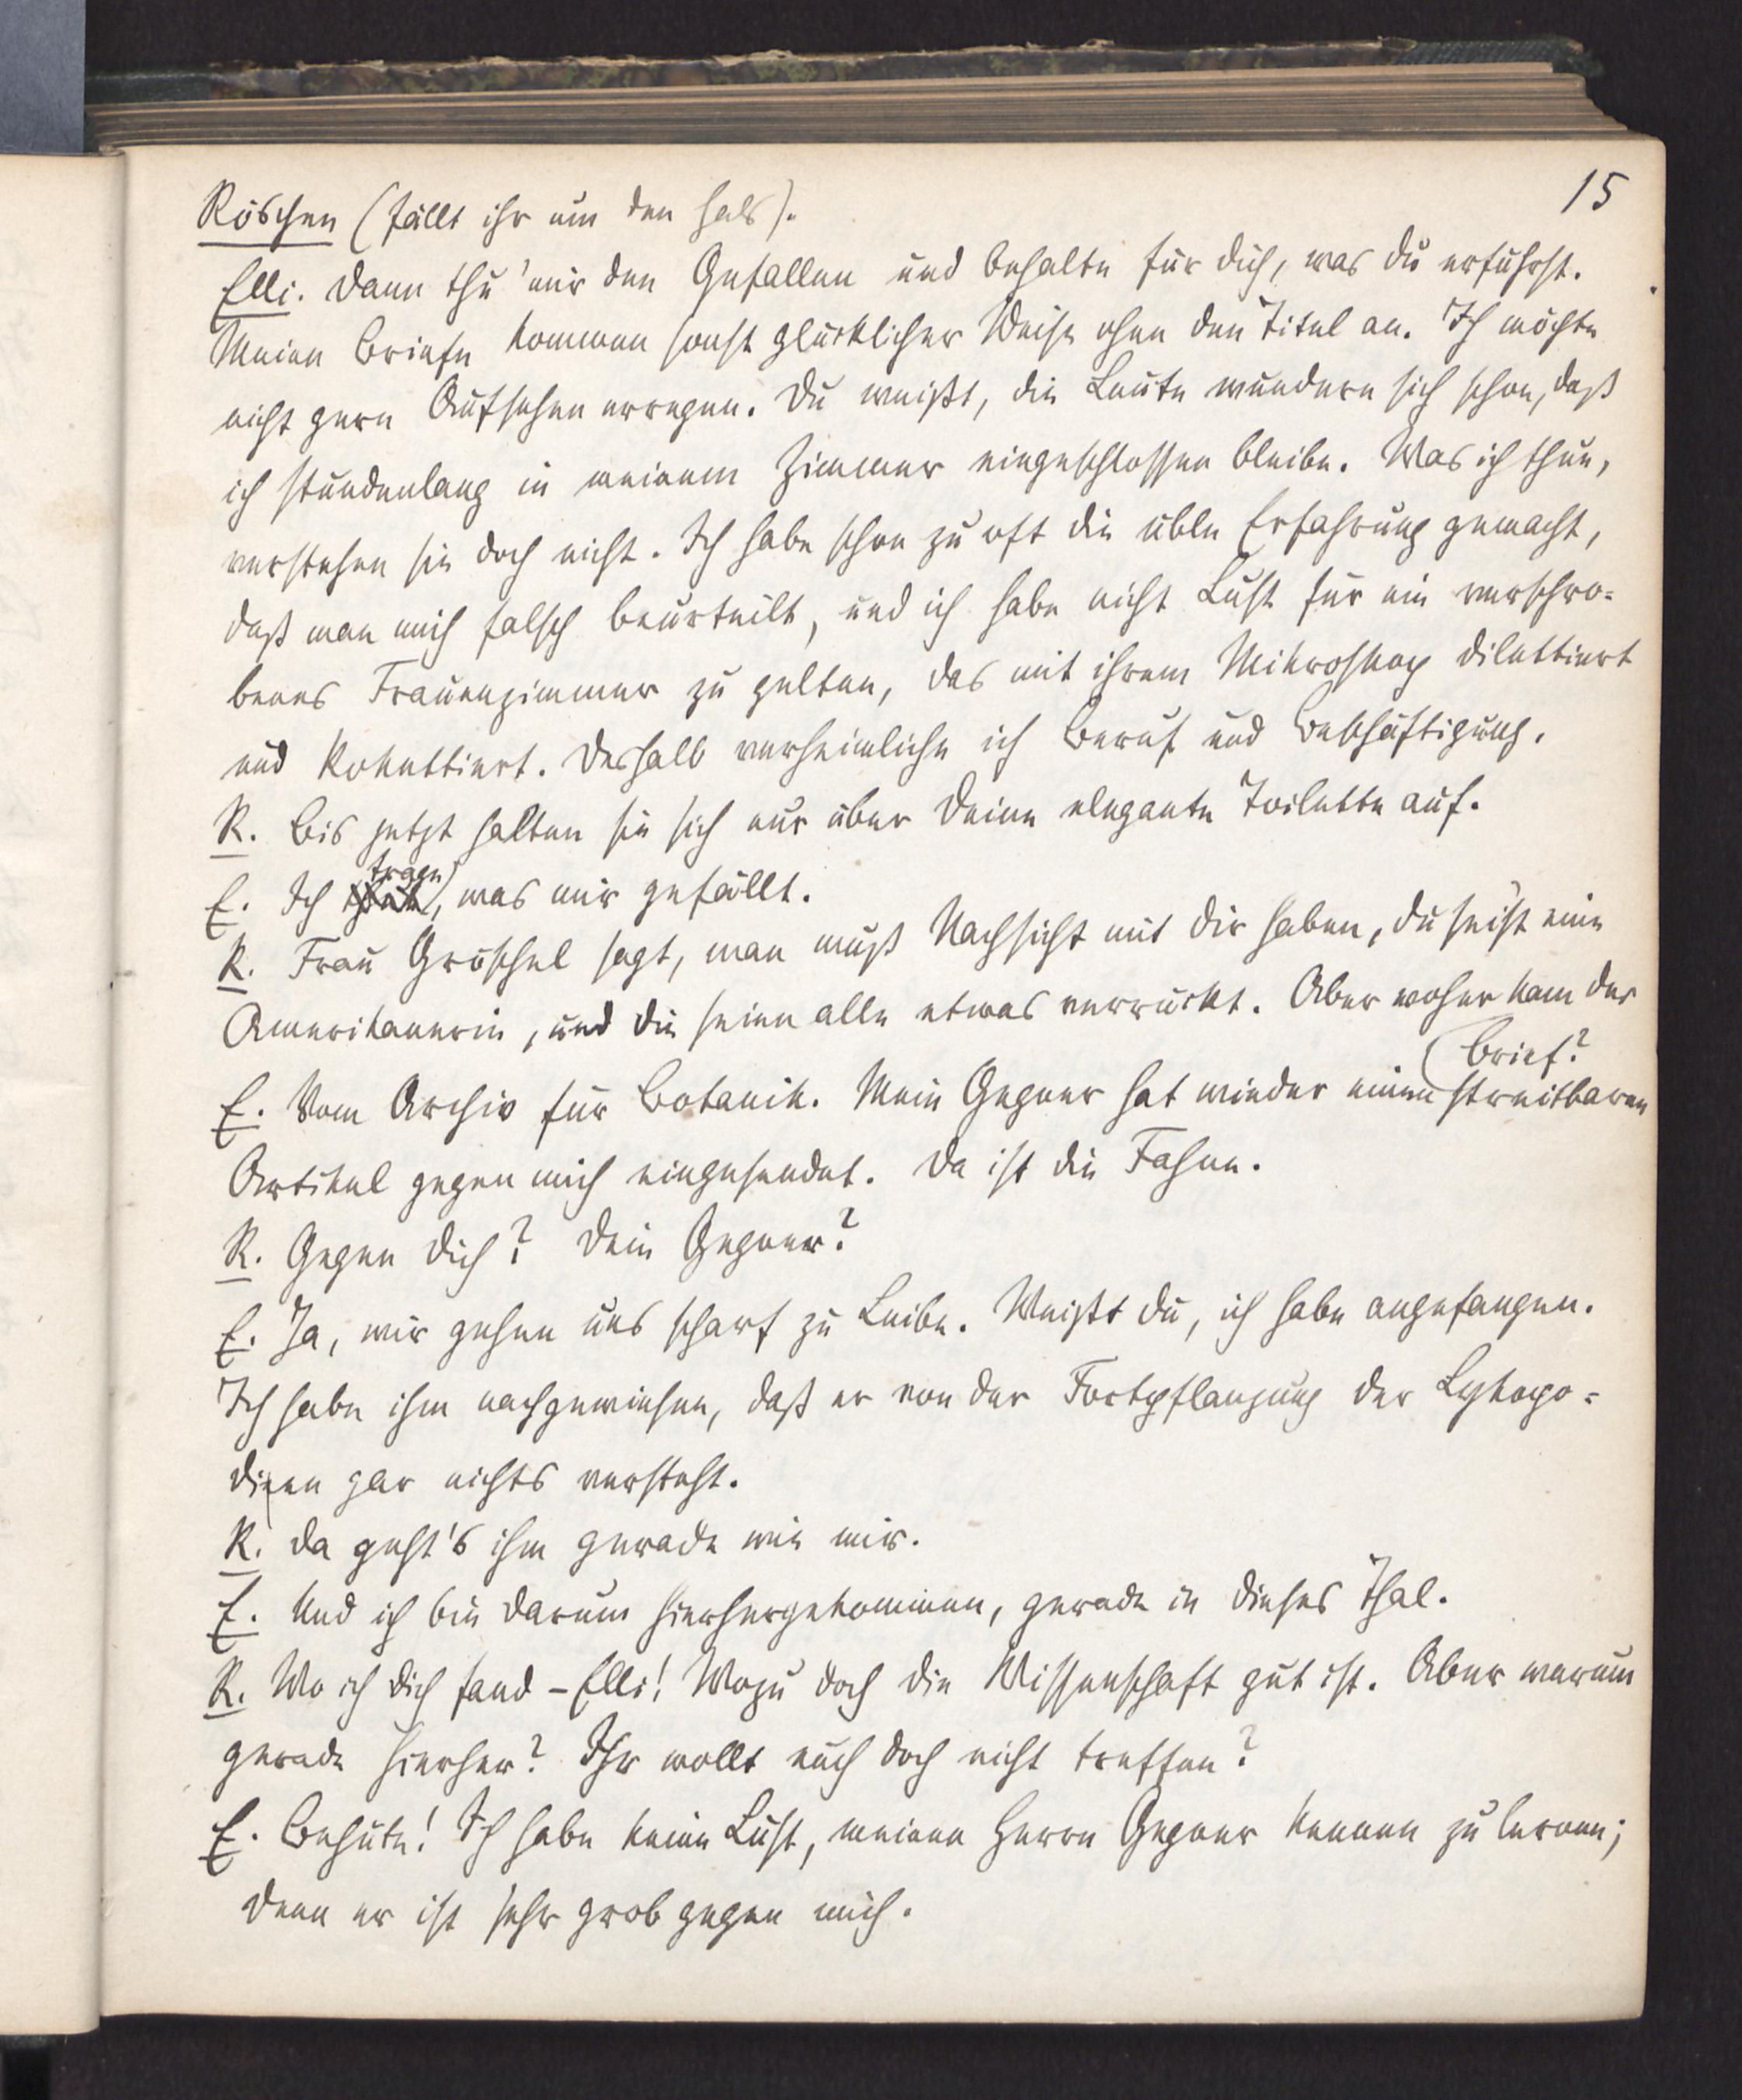 15
Röschen (fällt ihr um den Hals).
Elli. Dann thu' mir den Gefallen und behalte für dich, was du erfuhrst.
Meine Briefe kommen sonst glücklicher Weise ohne den Titel an. Ich möchte
nicht gern Aufsehen erregen. Du weißt, die Leute wundern sich schon, daß
ich stundenlang in meinem Zimmer eingeschlossen bleibe. Was ich thue,
verstehen sie doch nicht. Ich habe schon zu oft die üble Erfahrung gemacht,
daß man mich falsch beurteilt, und ich habe nicht Lust für ein verschro-
benes Frauenzimmer zu gelten, das mit ihrem Mikroskop dilettiert
und kokettiert. Deshalb verheimliche ich Beruf und Beschäftigung.
R. Bis jetzt halten sie sich nur über Deine elegante Toilette auf.
E. Ich trage, was mir gefällt.
R. Frau Gröschel sagt, man muß Nachsicht mit dir haben, du seist eine
Amerikanerin, und die seien alle etwas verrückt. Aber woher kam der
Brief?
E. Vom Archiv für Botanik. Mein Gegner hat wieder einen streitbaren
Artikel gegen mich eingesendet. Da ist die Fahne.
R. Gegen Dich? Dein Gegner?
E. Ja, wir gehen uns scharf zu Leibe. Weißt du, ich habe angefangen.
Ich habe ihm nachgewiesen, daß er von der Fortpflanzung der Lykopo-
dieen gar nichts versteht.
R. Da geht's ihm gerade wie mir.
E. Und ich bin darum hierhergekommen, gerade in dieses Thal.
R. Wo ich dich fand – Elli! Wozu doch die Wissenschaft gut ist. Aber warum
gerade hierher? Ihr wollt euch doch nicht treffen?
E. Behüte! Ich habe keine Lust, meinen Herrn Gegner kennen zu lernen;
denn er ist sehr grob gegen mich.